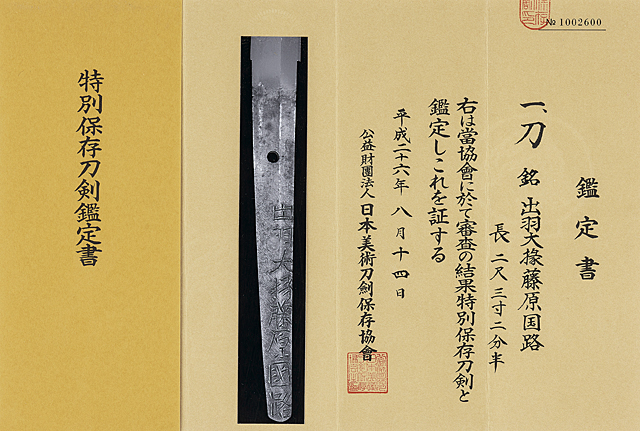 № 1002600
鑑定書
一、刀 銘 出羽大掾藤原国路
長 二尺三寸二分半
右は當協會に於て審査の結果特別保存刀剣と
鑑定しこれを証する
平成二十六年 八月十四日
公益財團法人 日本美術刀劍保存協會
出羽大掾藤原國路
特別保存刀剣鑑定書